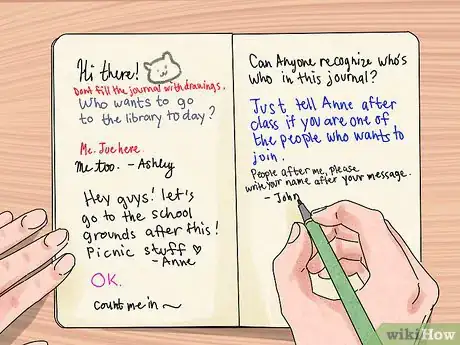 Hi there!
Dont fill the journal with drawings.
Who wants to go
to the library today?
Me. Joe here.
Me too. - Ashley
Hey guys! let's
go to the school
grounds after this!
Picnic stuff ♡
- Anne
OK.
count me in ~
Can Anyone recognize who's
who in this journal?
Just tell Anne after
class if you are one of
the people who wants to
join.
People after me, please
write your name after your message.
- John
wikiHow